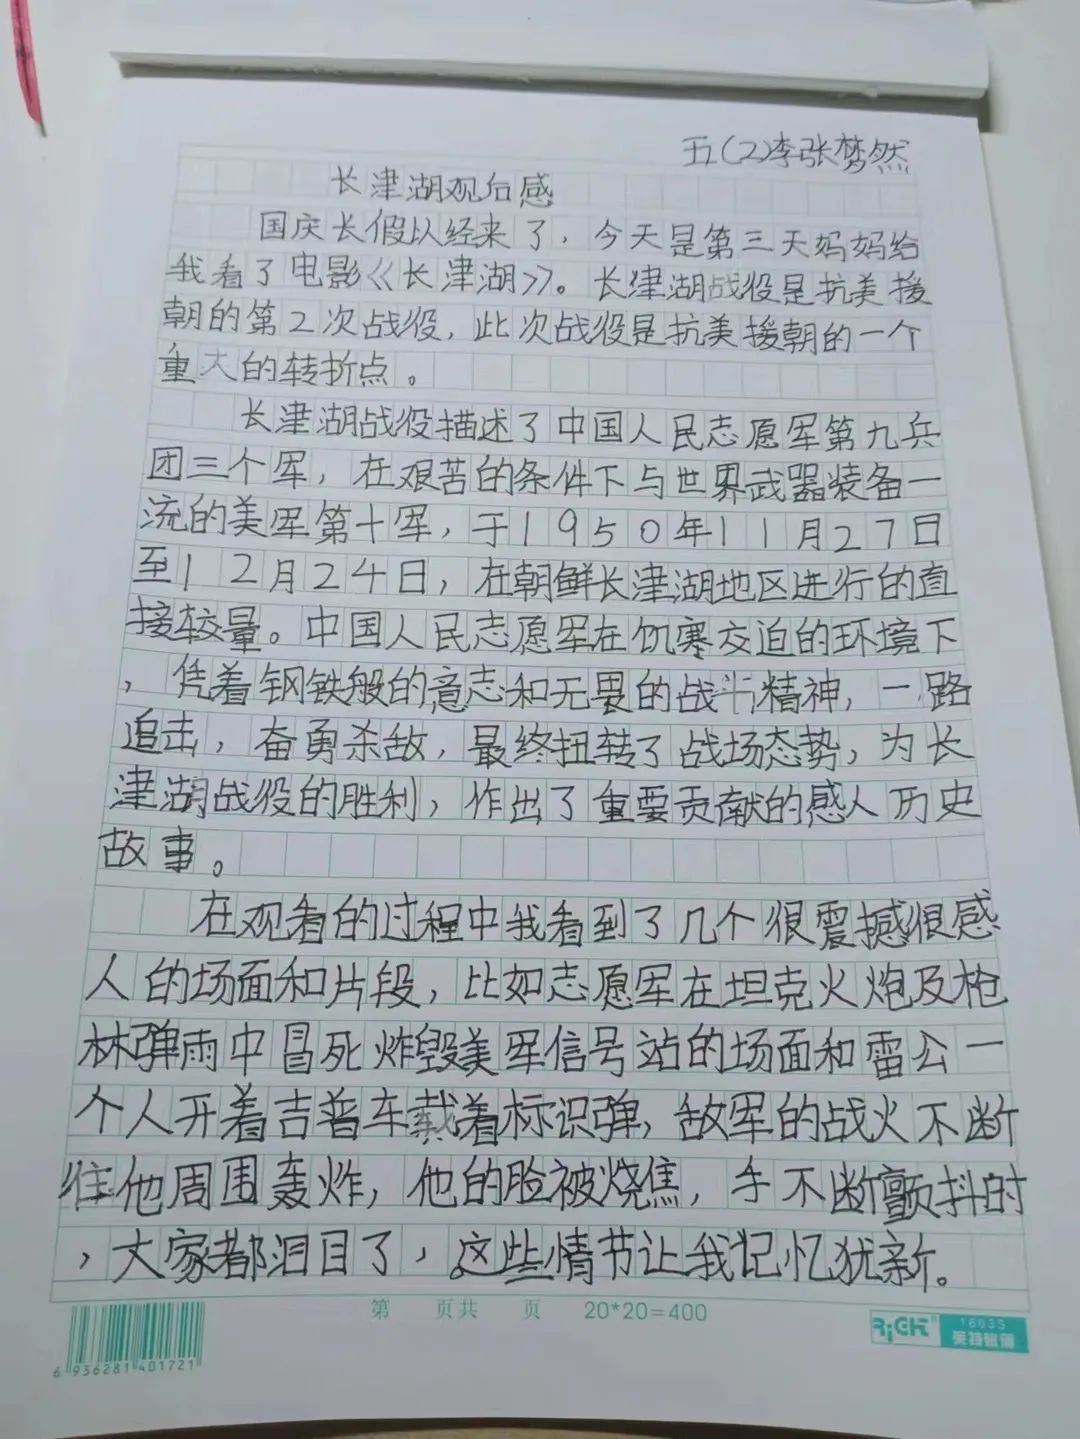 五(2)李张梦然
长津湖观后感
国庆长假以经来了，今天是第三天妈妈给
我看了电影《长津湖》。长津湖战役是抗美援
朝的第2次战役，此次战役是抗美援朝的一个
重大的转折点。
长津湖战役描述了中国人民志愿军第九兵
团三个军，在艰苦的条件下与世界武器装备一
流的美军第十军，于1950年11月27日
至12月24日，在朝鲜长津湖地区进行的直
接较量。中国人民志愿军在饥寒交迫的环境下
，凭着钢铁般的意志和无畏的战斗精神，一路
追击，奋勇杀敌，最终扭转了战场态势，为长
津湖战役的胜利，作出了重要贡献的感人历史
故事。
在观看的过程中我看到了几个很震撼很感
人的场面和片段，比如志愿军在坦克火炮及枪
林弹雨中冒死炸毁美军信号站的场面和雷公一
个人开着吉普车载着标识弹，敌军的战火不断
往他周围轰炸，他的脸被烧焦，手不断颤抖时
，大家都泪目了，这些情节让我记忆犹新。
第 页共 页 20*20=400
RiCH 1603S
英特账簿
6 936281 401721